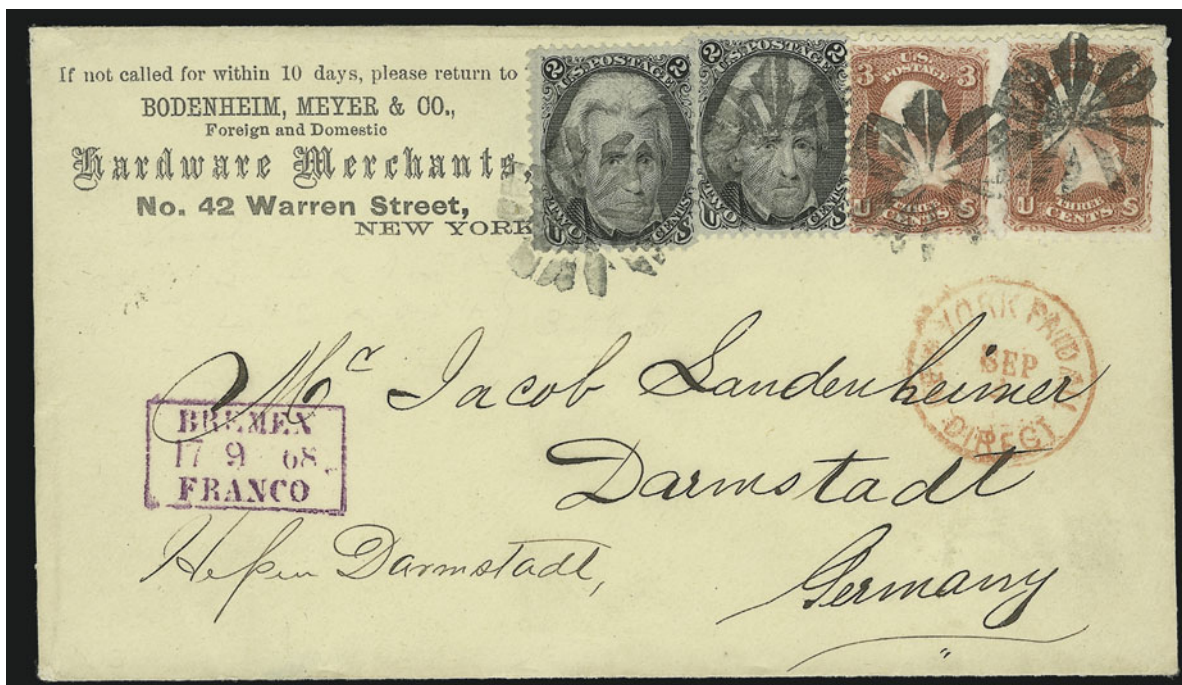 If not called for within 10 days, please return to
BODENHEIM, MEYER & CO.,
Foreign and Domestic
Hardware Merchants,
No. 42 Warren Street,
NEW YORK
2 U.S. POSTAGE 2
TWO CENTS
U S
2 U.S. POSTAGE 2
TWO CENTS
U S
3 U.S. POSTAGE 3
THREE CENTS
U S
3
THREE CENTS
U S
YORK PAID ALL
SEP
DIRECT
Mr Jacob Landenheimer
Darmstadt
BREMEN
17 9 68
FRANCO
Heßen Darmstadt,
Germany